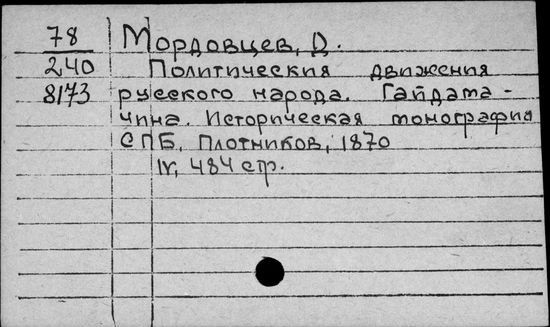 78 Мордовцев, Д.
240 Политическия движения
8173 русского народа. Гайдама-
чина. Историческая монография
СПБ, Плотников, 1870
IV, 484 стр.